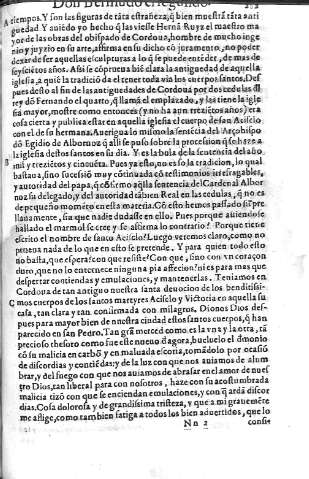 Don Bermudo el segundo.
A tiempos. Y son las figuras de tāta estrañeza, q̄ bien muestrā tāta anti
guedad. Y auiēdo yo hecho q̄ las viesse Hernā Ruyz el maestro ma
yor de las obras del obispado de Cordoua, hombre de mucho inge
nio y juyzio en su arte, affirma en su dicho cō juramento, no poder
dexar de ser aquellas esculpturas a lo q̄ se puede entēder, de mas de
seyscietos años. Assi se cōprueua biē clara la antiguedad de aquella
iglesia, a quiē la tradiciō da el tener toda via los cuerpos santos. Des
pues desto al fin de las antiguedades de Cordoua por dos cedulas dl
rey dō Fernando el quarto, q̄ llamā el emplazado, y las tiene la igle
sia mayor, mostre como entonces (y no ha aun trezietos años) era
cosa cierta y publica estar en aquella iglesia el cuerpo de san Acisclo
con el de su hermana. Auerigualo mismo la sentēcia del Arçobispo
dō Egidio de Albornoz q̄ alli se puso sobre la procession q̄ se haze a
la iglesia destos santos en su dia. Y es la bula de la sentencia del año
B mil y trezietos y cincuēta. Pues ya esto, no es solo la tradicion, lo qual
bastaua, sino sucessiō muy cōtinuada cō testimonios irrefragables,
y autoridad del papa, q̄ cōfirmo aq̄lla sentencia del Cardenal Albor
noz su delegado, y del autoridad tābien Real en las cedulas, q̄ no es
de pequeño momēto en esta materia. Cō esto hemos passado siēpre
llanamente, sin que nadie dudasse en ello. Pues porque auiendose
hallado el marmol se cree y se affirma lo contrario? Porque tiene
escrito el nombre de santo Acisclo? Luego veremos claro, como no
prueua nada de lo que en esto se pretende. Y para quien todo esto
no basta, que espera? con que resiste? Con que, sino con vn coraçon
duro, que no lo enternece ninguna pia affeccion? ni es para mas que
despertar contiendas y emulaciones, y mantenerlas. Teniamos en
Cordoua de tan antiguo nuestra santa deuocion de los benditissi-
C mos cuerpos de los santos martyres Acisclo y Victoria en aquella su
casa, tan clara y tan confirmada con milagros. Dionos Dios des-
pues para mayor bien de nuestra ciudad estos santos cuerpos, q̄ han
parecido en san Pedro. Tan grā merced como es la vna y la otra, tā
precioso thesoro como fue este nueuo d̄ agora, buelue lo el dmonio
cō su malicia en carbō y en maluada escoria, tomādolo por ocasiō
de discordias y contiēdas: y de la luz con que nos auiamos de alum
brar, y del fuego con que nos auiamos de abrasar en el amor de nues
tro Dios, tan liberal para con nosotros, haze con su acostumbrada
malicia tizō con que se enciendan emulaciones, y con q̄ ardā discor
dias. Cosa dolorosa y de grandissima tristeza, y que a mi grauemēte
me aflige, como tambien fatiga a todos los bien aduertidos, que lo
Nn 2 consi-